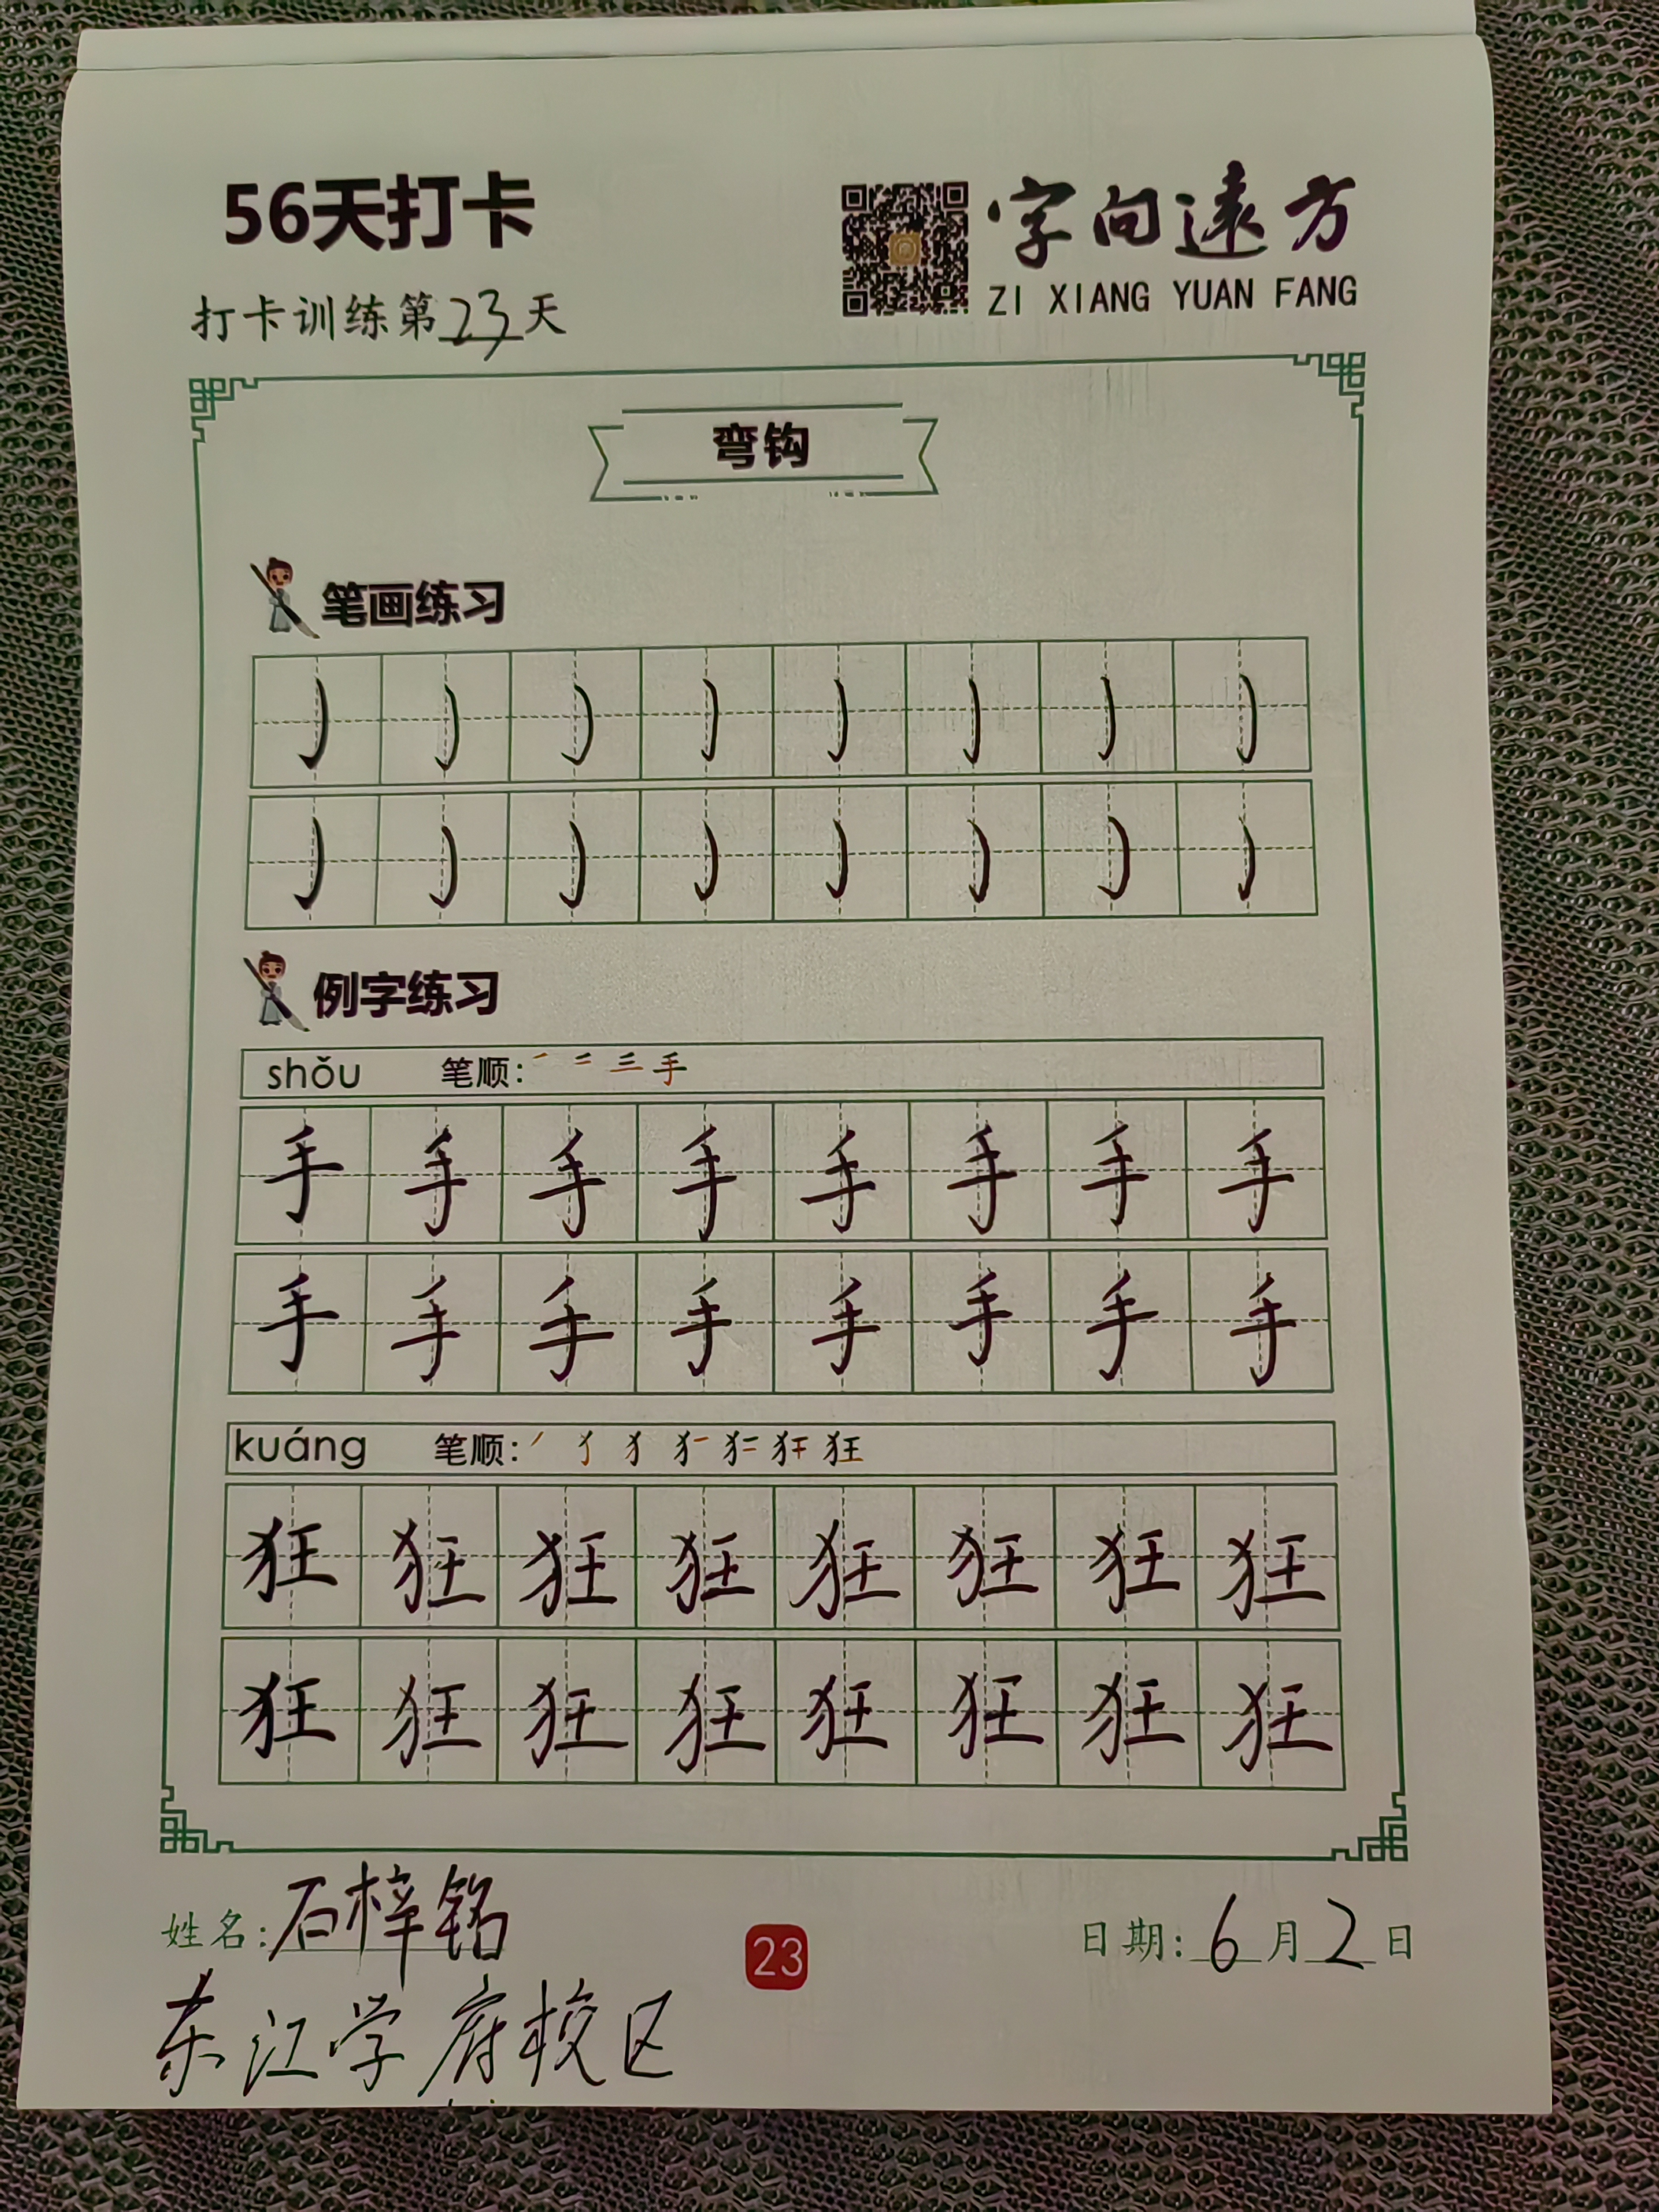 56天打卡
字向遠方
ZI XIANG YUAN FANG
打卡训练第23天
弯钩
笔画练习
例字练习
shǒu 笔顺:
手 手 手 手 手 手 手 手
手 手 手 手 手 手 手 手
kuáng 笔顺:
狂 狂 狂 狂 狂 狂 狂 狂
狂 狂 狂 狂 狂 狂 狂 狂
姓名:石梓铭
23
日期:6月2日
东江学府校区